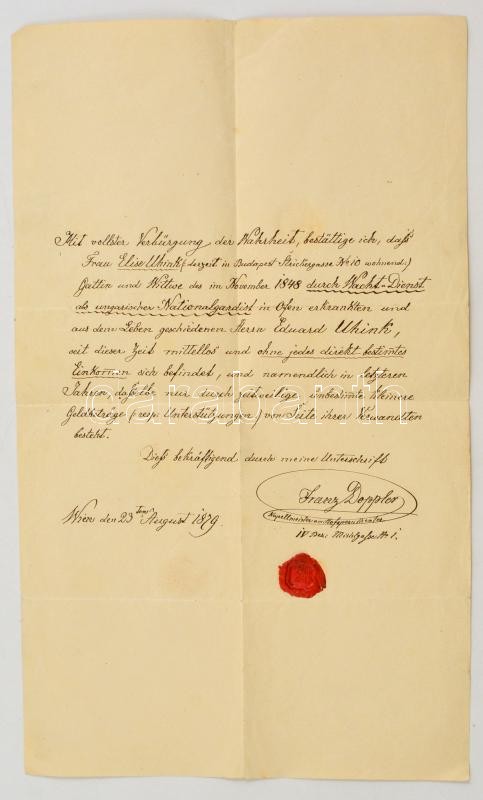 Mit vollster Verbürgung der Wahrheit, bestättige ich, daß
Frau Elise Uhink (derzeit in Budapest Strickergasse No 10 wohnend.)
Gattin und Witwe des im November 1848 durch Wacht-Dienst
als ungarischer Nationalgardist in Ofen erkrankten und
aus dem Leben geschiedenen Herrn Eduard Uhink,
seit dieser Zeit mittellos und ohne jedes direkt bestimtes
Einkomen sich befindet, und namendlich in letzteren
Jahren, daßelbe nur durch zeitweilige unbestimte kleinere
Geldbeträge (resp. Unterstützungen) von Seite ihrer Verwandten
besteht.
Dieß bekräftigend durch meine Unterschrift
Franz Doppler
Wien den 23ten August 1879.
Kapellmeister am Hofoperntheater
IV Bez: No 1.
darabanth